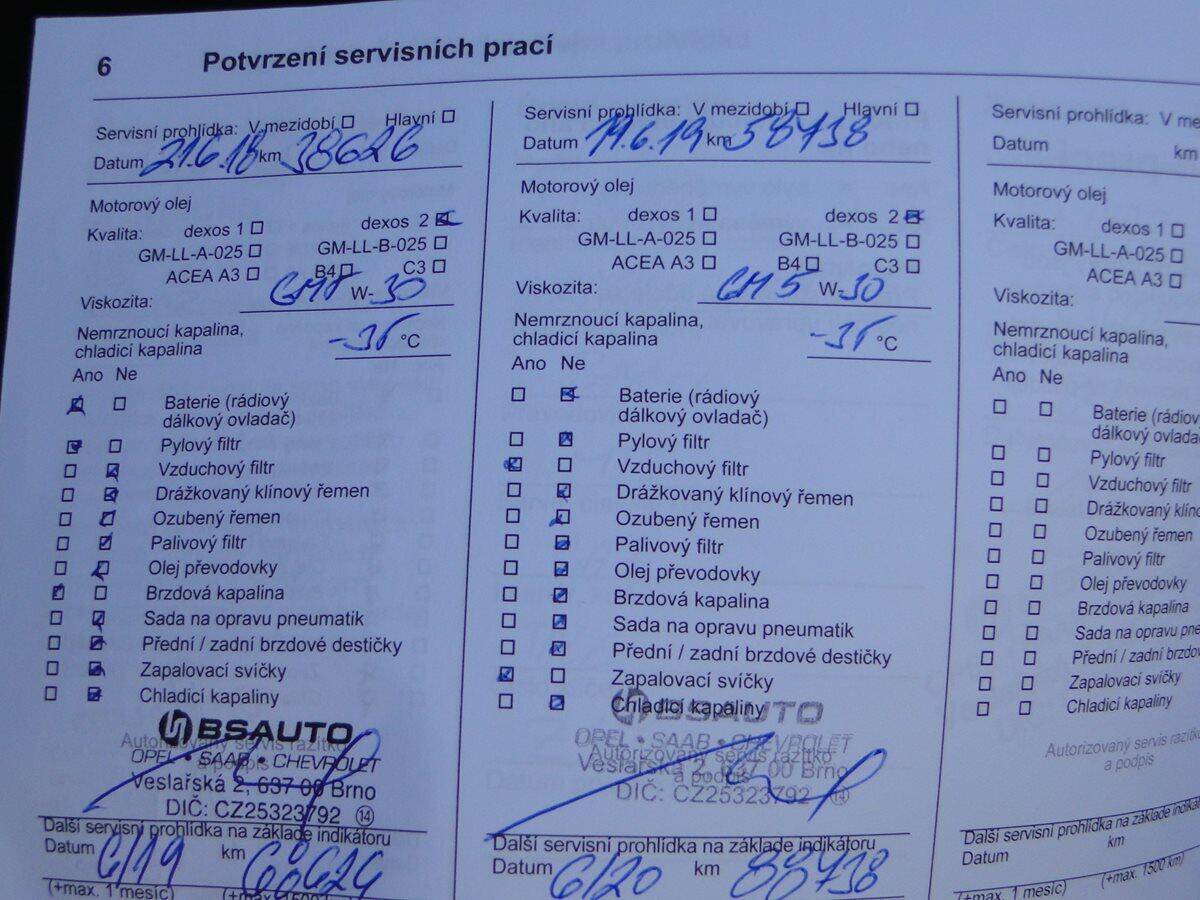 6 Potvrzení servisních prací
Servisní prohlídka: V mezidobí Hlavní
Datum 21.6.18 km 38626
Motorový olej
Kvalita: dexos 1 dexos 2
GM-LL-A-025 GM-LL-B-025
ACEA A3 B4 C3
Viskozita: GM5 W-30
Nemrznoucí kapalina,
chladicí kapalina -35 °C
Ano Ne
Baterie (rádiový
dálkový ovladač)
Pylový filtr
Vzduchový filtr
Drážkovaný klínový řemen
Ozubený řemen
Palivový filtr
Olej převodovky
Brzdová kapalina
Sada na opravu pneumatik
Přední / zadní brzdové destičky
Zapalovací svíčky
Chladicí kapaliny
BSAUTO
Autorizovaný servis razítko
OPEL • SAAB • CHEVROLET
a podpis
Veslařská 2, 637 00 Brno
DIČ: CZ25323792 14
Další servisní prohlídka na základě indikátoru
Datum 6/19 km 68626
(+max. 1 měsíc) (+max. 1500 km)
Servisní prohlídka: V mezidobí Hlavní
Datum 19.6.19 km 58738
Motorový olej
Kvalita: dexos 1 dexos 2
GM-LL-A-025 GM-LL-B-025
ACEA A3 B4 C3
Viskozita: GM 5 W-30
Nemrznoucí kapalina,
chladicí kapalina -35 °C
Ano Ne
Baterie (rádiový
dálkový ovladač)
Pylový filtr
Vzduchový filtr
Drážkovaný klínový řemen
Ozubený řemen
Palivový filtr
Olej převodovky
Brzdová kapalina
Sada na opravu pneumatik
Přední / zadní brzdové destičky
Zapalovací svíčky
Chladicí kapaliny
BSAUTO
OPEL • SAAB • CHEVROLET
Autorizovaný servis razítko
Veslařská 2, 637 00 Brno
a podpis
DIČ: CZ25323792 14
Další servisní prohlídka na základě indikátoru
Datum 6/20 km 88738
Servisní prohlídka: V me
Datum km
Motorový olej
Kvalita: dexos 1
GM-LL-A-025
ACEA A3
Viskozita:
Nemrznoucí kapalina,
chladicí kapalina
Ano Ne
Baterie (rádiov
dálkový ovlada
Pylový filtr
Vzduchový filtr
Drážkovaný klíno
Ozubený řemen
Palivový filtr
Olej převodovky
Brzdová kapalina
Sada na opravu pne
Přední / zadní brzdo
Zapalovací svíčky
Chladicí kapaliny
Autorizovaný servis razítko
a podpis
Další servisní prohlídka na základě indikát
Datum km
(+max. 1 měsíc) (+max. 1500 km)